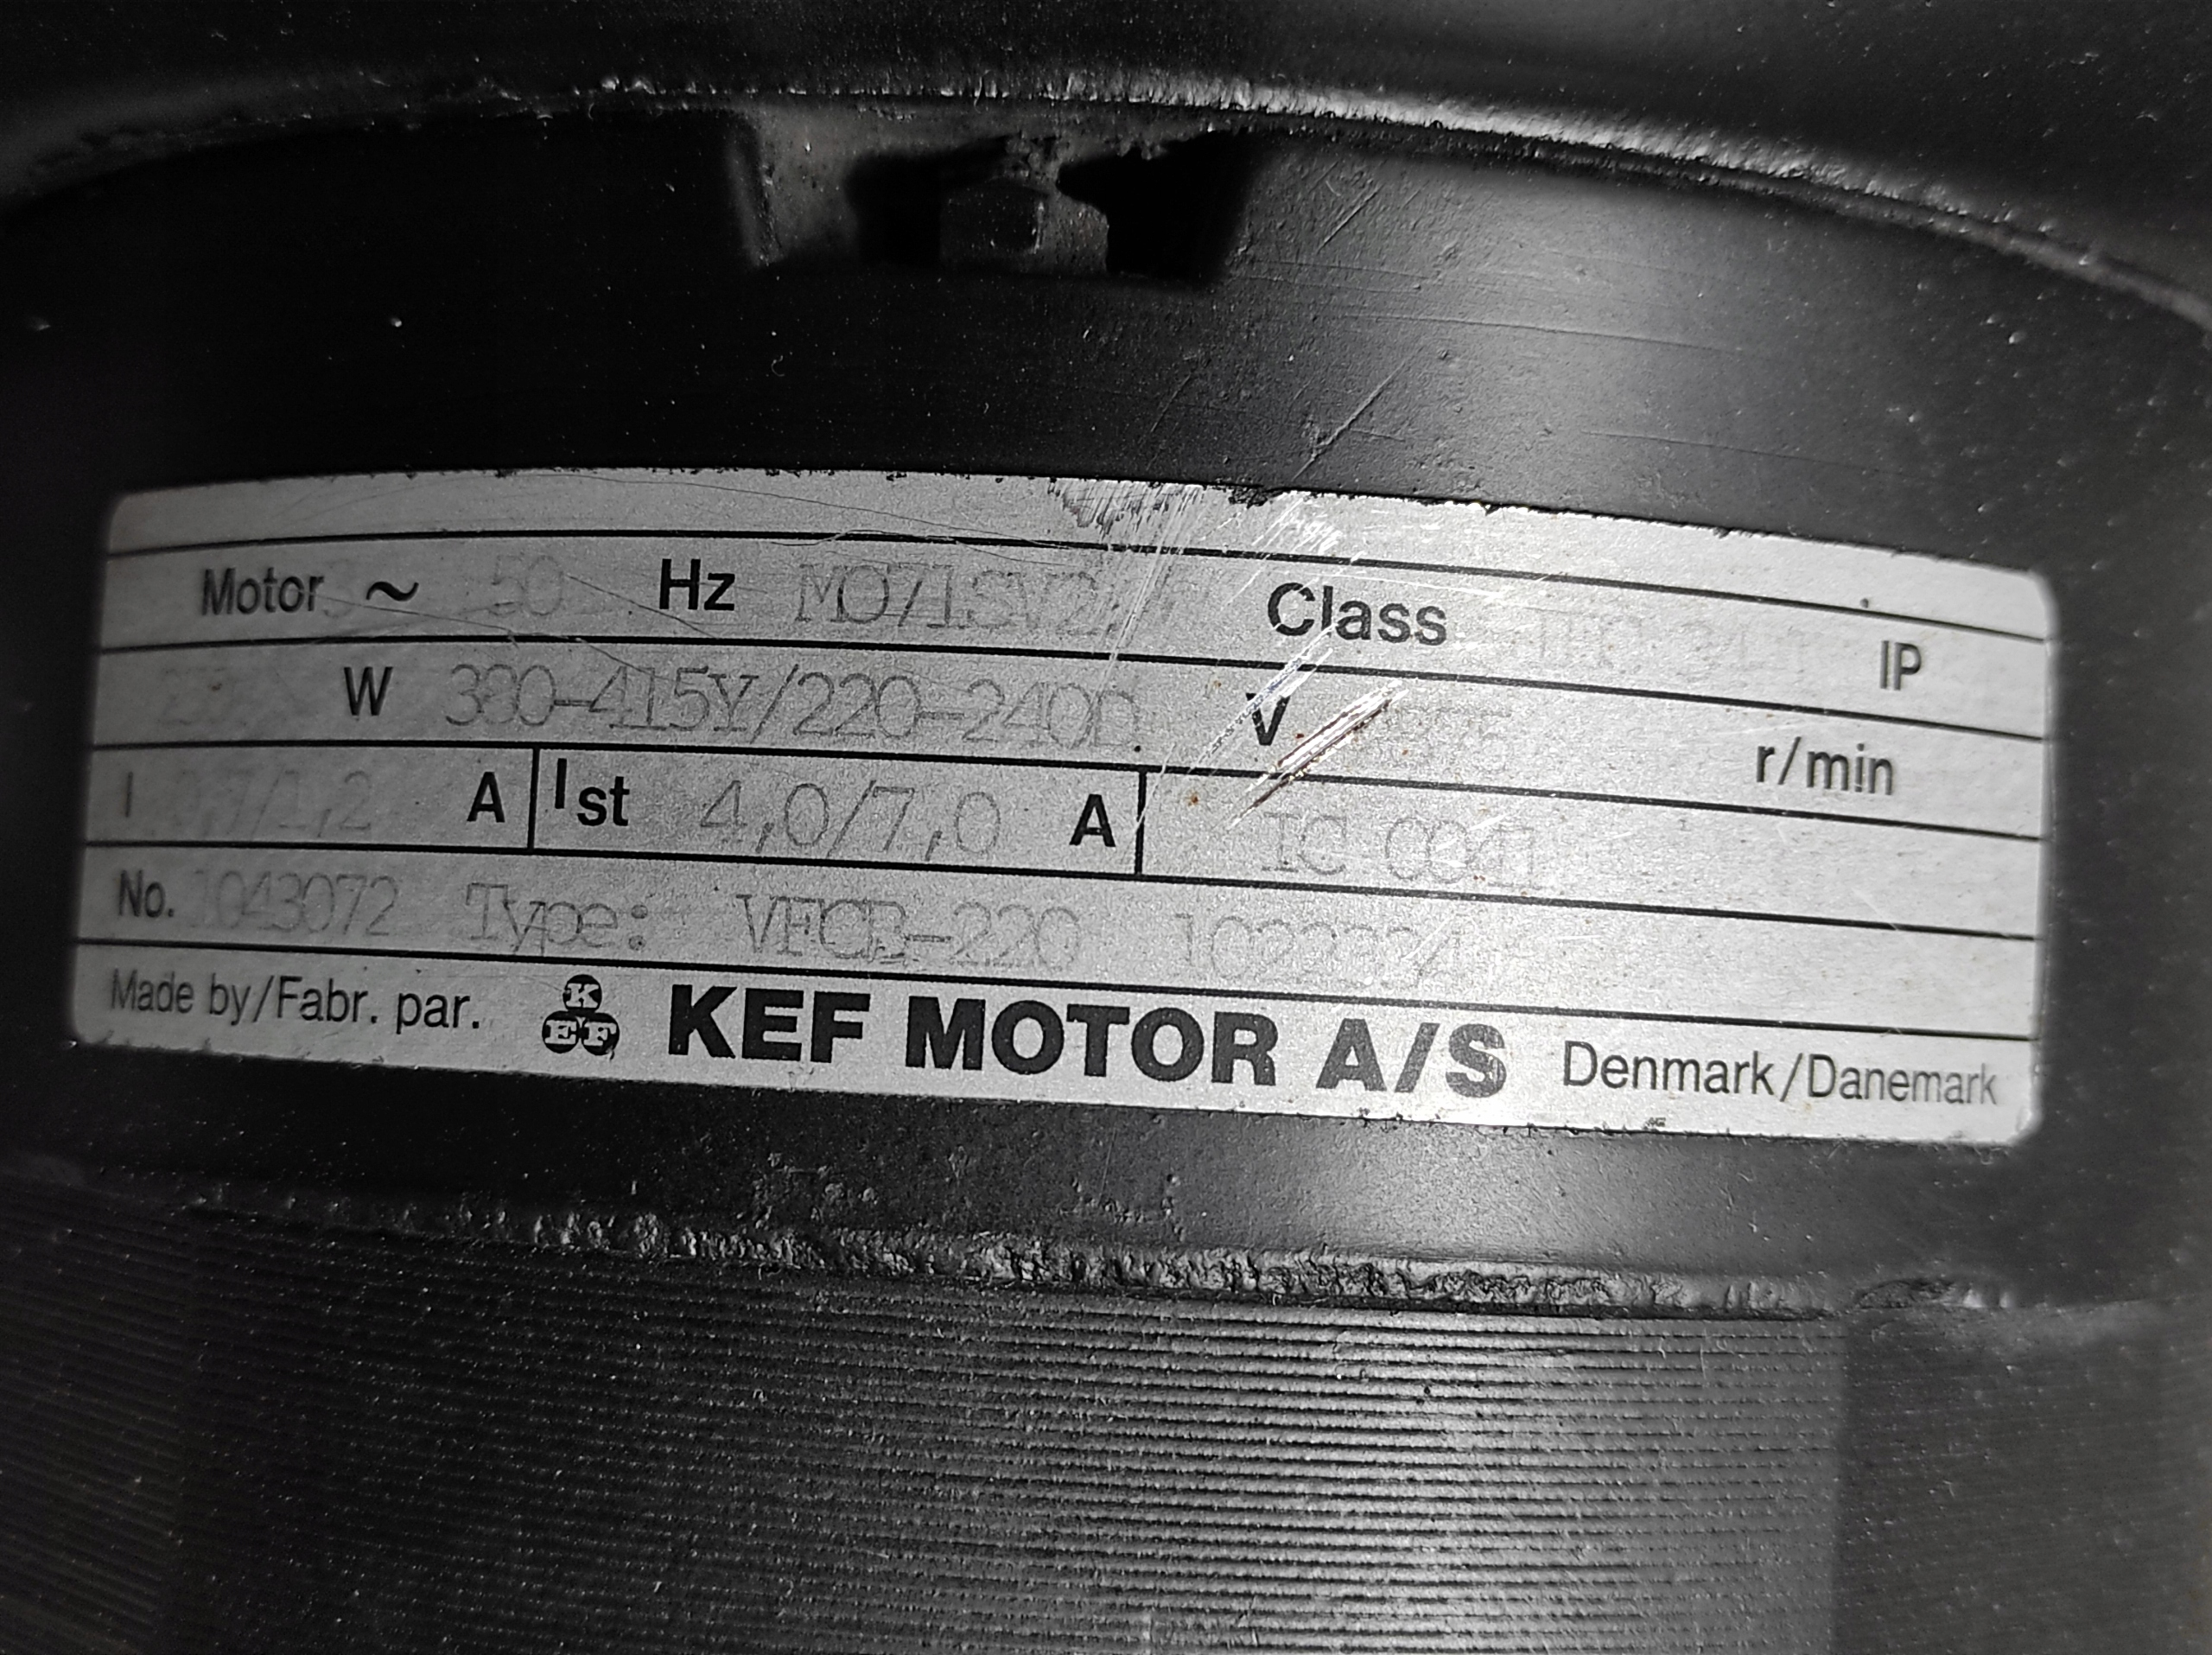 Motor 3 ~ 50 Hz MO71SV2 Class IP
W 380-415Y/220-240D V r/min
I 0,7/1,2 A Ist 4,0/7,0 A IC 0041
No. 1043072 Type: VFCB-220
Made by/Fabr. par. KEF KEF MOTOR A/S Denmark/Danemark